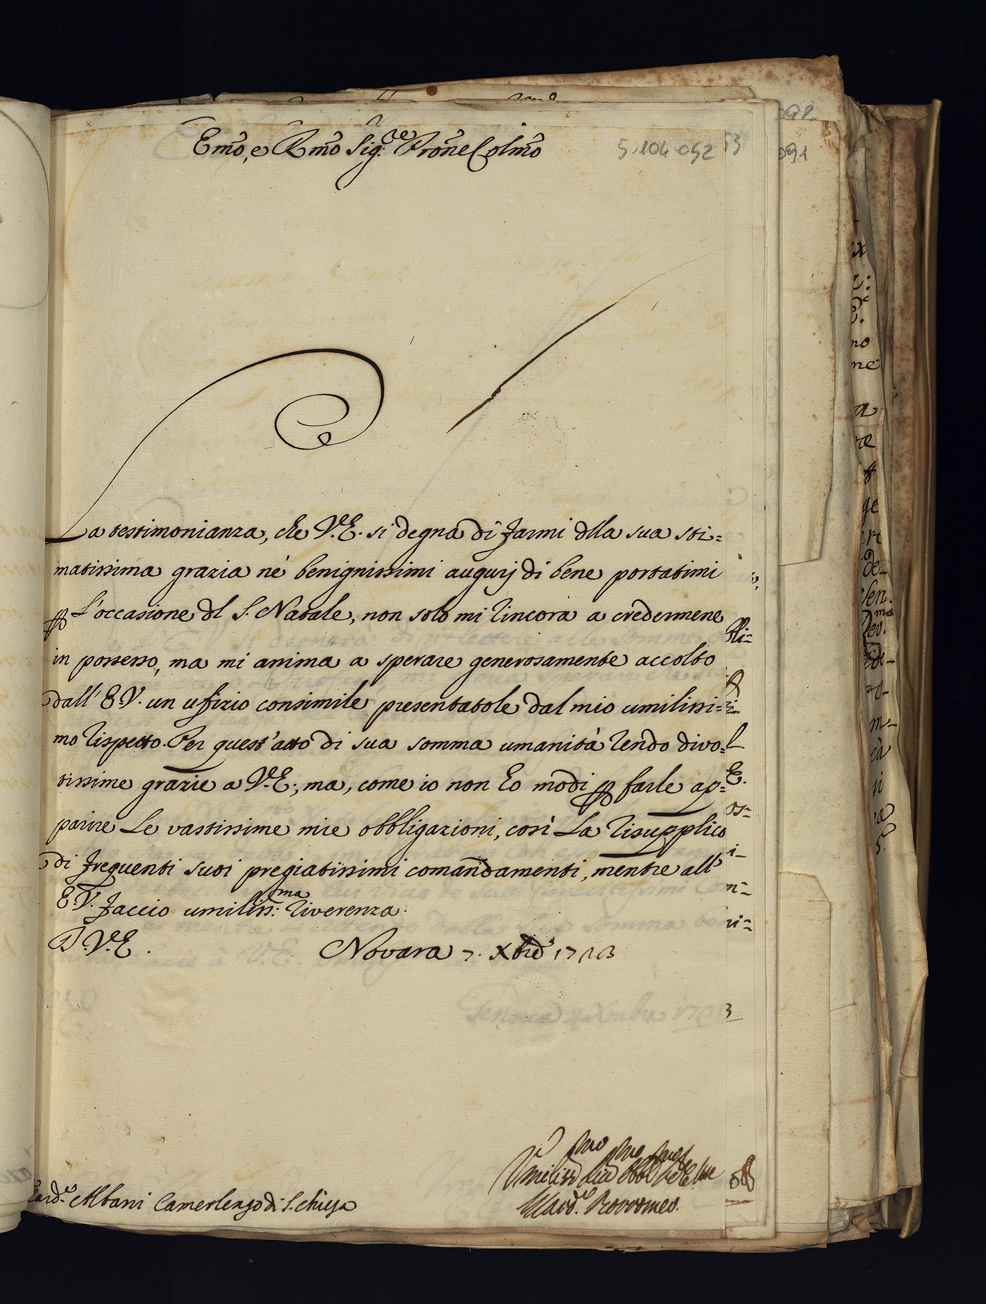 Emo, e Rmo Sig.re Prone Colmo
5.104.052
La testimonianza, che V.E. si degna di farmi dlla sua sti=
matissima grazia ne' benignissimi augurj di bene portatimi
L'occasione dl S. Natale, non solo mi rincora a credermene
in possesso, ma mi anima a sperare generosamente accolto
dall' E.V. un ufizio consimile presentatole dal mio umilissi=
mo rispetto. Per quest'atto di sua somma umanità rendo divo=
tissime grazie a V.E.; ma, come io non ho modi farle ap=
parire Le vastissime mie obbligazioni, così La risupplico
di frequenti suoi pregiatissimi comandamenti, mentre all'
E.V. faccio umiliss:ma riverenza.
D. V.E. Novara 7. Xbre 1723
Card.e Albani Camerlengo di S. Chiesa
Il Card.e Borromeo.